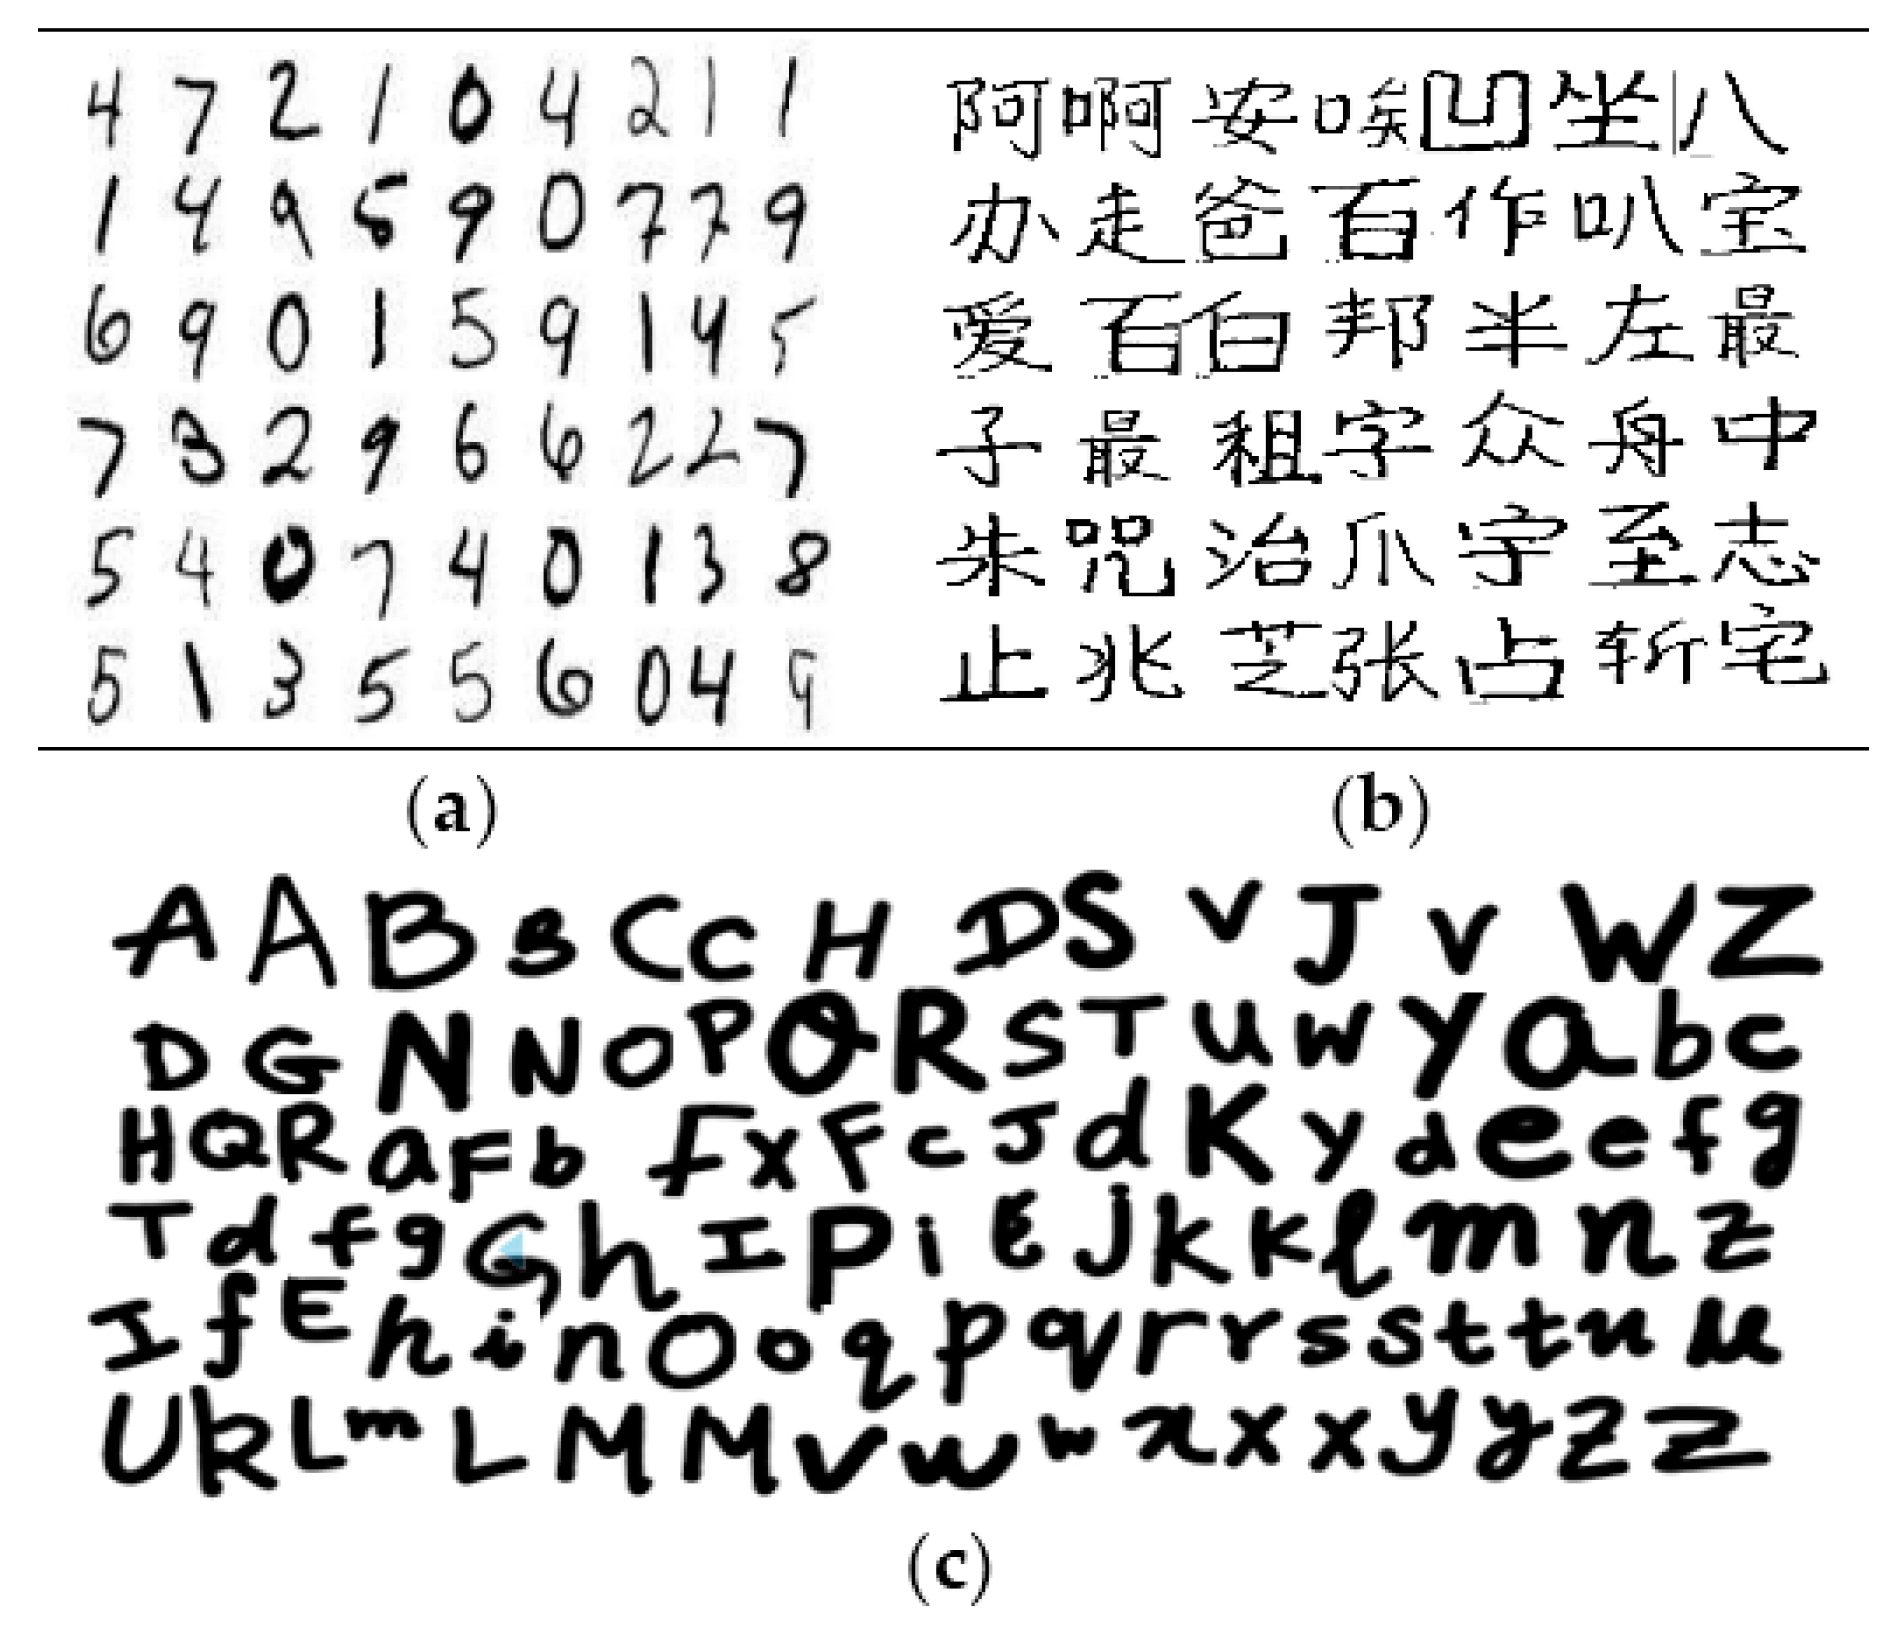 4 7 2 1 0 4 2 1 1
1 4 9 5 9 0 7 7 9
6 9 0 1 5 9 1 4 5
7 3 2 9 6 6 2 2 7
5 4 0 7 4 0 1 3 8
5 1 3 5 5 6 0 4 9
(a)
阿 啊 安 唉 凹 坐 八
办 走 爸 百 作 叭 宝
爱 百 白 邦 半 左 最
子 最 租 字 众 舟 中
朱 咒 治 爪 宇 至 志
止 兆 芝 张 占 斩 宅
(b)
A A B B C C H D S V J V W Z
D G N N O P Q R S T U W Y a b c
H Q R a F b F X F c J d K y d e e f g
T d f g G h I P i E J k k l m n z
I f E h i n O o q p q r r s s t t u u
U R L m L M M V w w x x x y y Z z
(c)